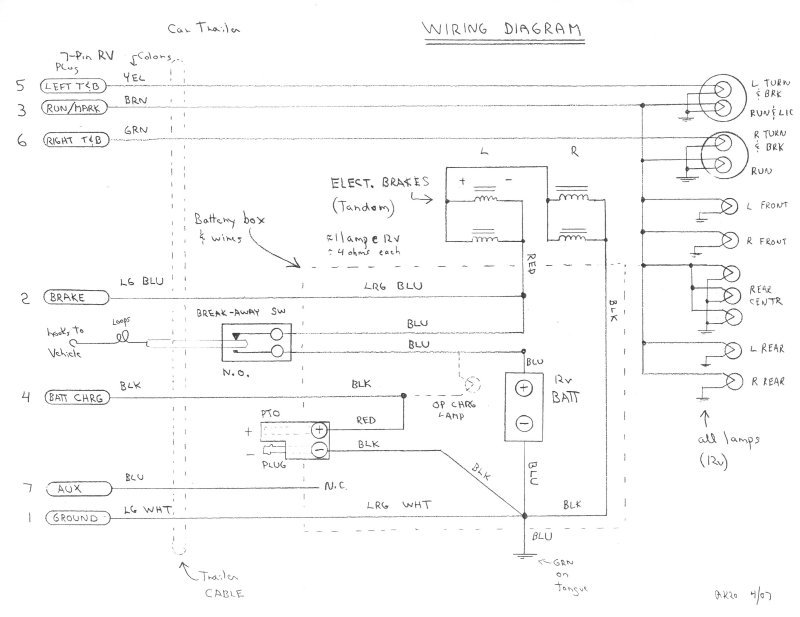 Car Trailer
WIRING DIAGRAM
7-Pin RV
Plug
Colors
5 LEFT T&B YEL
3 RUN/MARK BRN
6 RIGHT T&B GRN
L TURN
& BRK
RUN & LIC
R TURN
& BRK
RUN
L R
ELECT. BRAKES
(Tandom)
+ -
≈ 11 amp @ 12v
÷ 4 ohms each
L FRONT
R FRONT
REAR
CENTR
L REAR
R REAR
all lamps
(12v)
Battery box
& wires
RED
BLK
2 BRAKE LG BLU LRG BLU
BREAK-AWAY SW
BLU
BLU
hooks to
Vehicle
Loops
N.O.
BLU
12v
BATT
+
-
4 BATT CHRG BLK BLK
OP CHRG
LAMP
PTO
+ +
- -
PLUG
RED
BLK
BLK
BLU
7 AUX BLU N.C.
1 GROUND LG WHT LRG WHT BLK
BLU
GRN
on
tongue
Trailer
CABLE
4/07